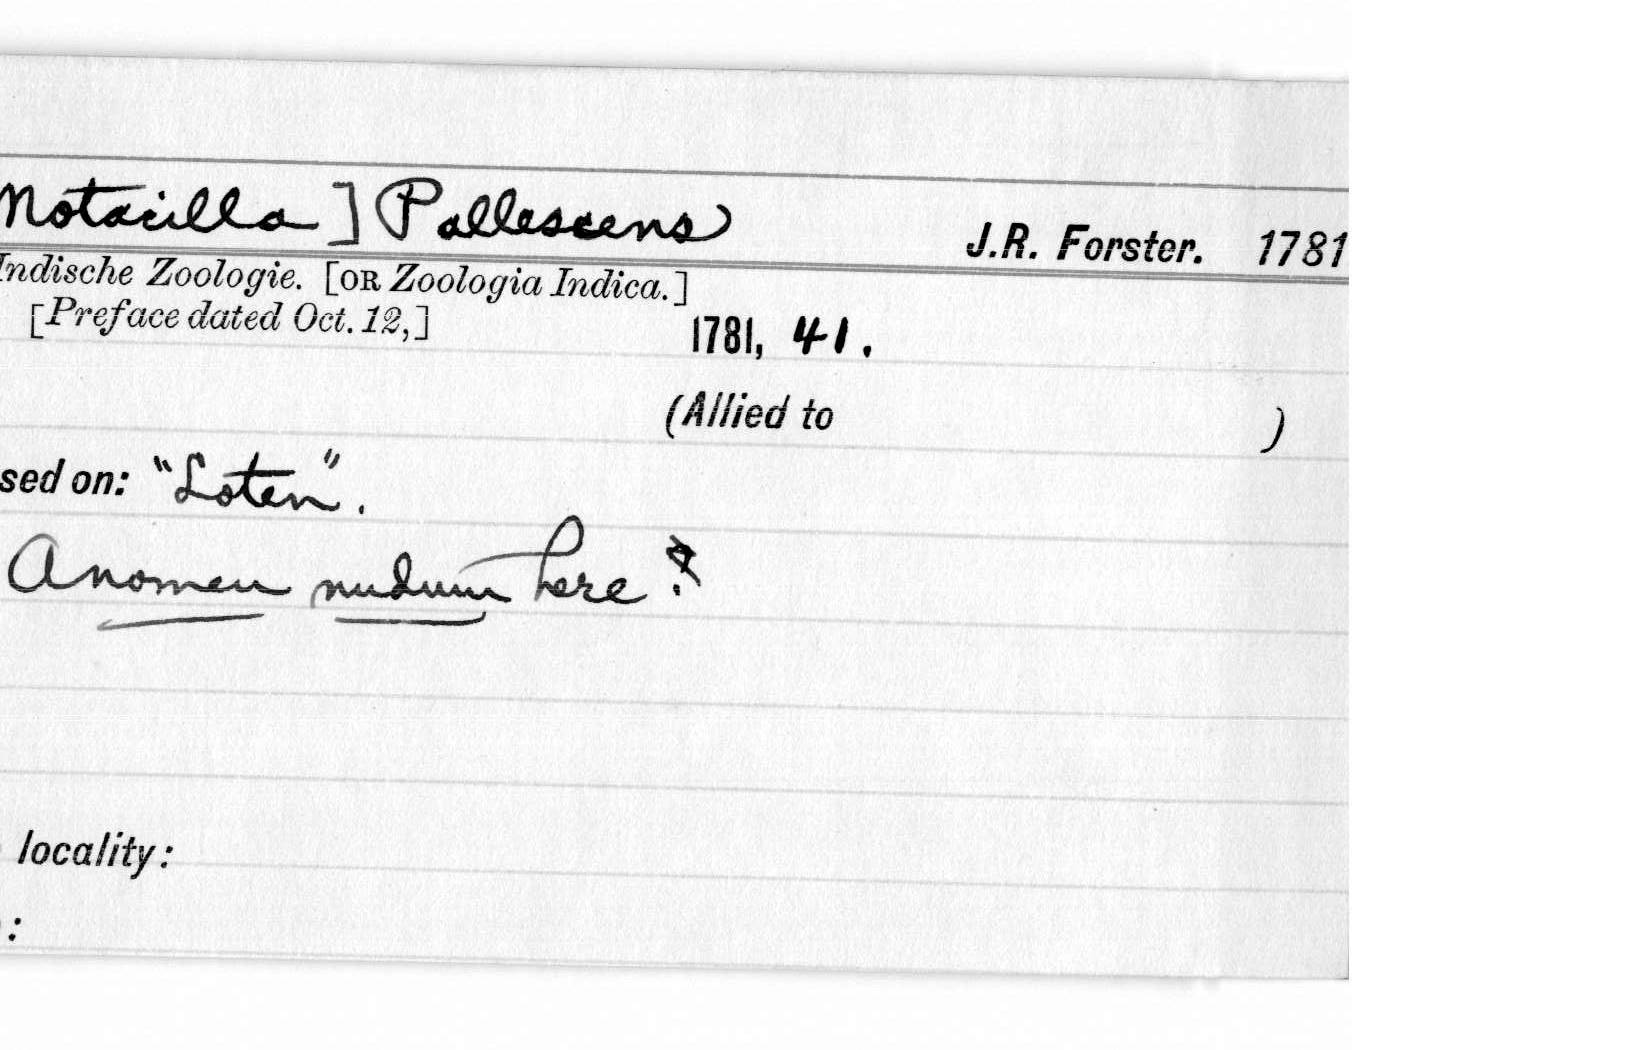 Motacilla ] Pallescens
J.R. Forster. 1781
Indische Zoologie. [OR Zoologia Indica.]
[Preface dated Oct. 12,]
1781, 41.
(Allied to )
sed on: "Loten".
A nomen nudum here ?
locality:
: